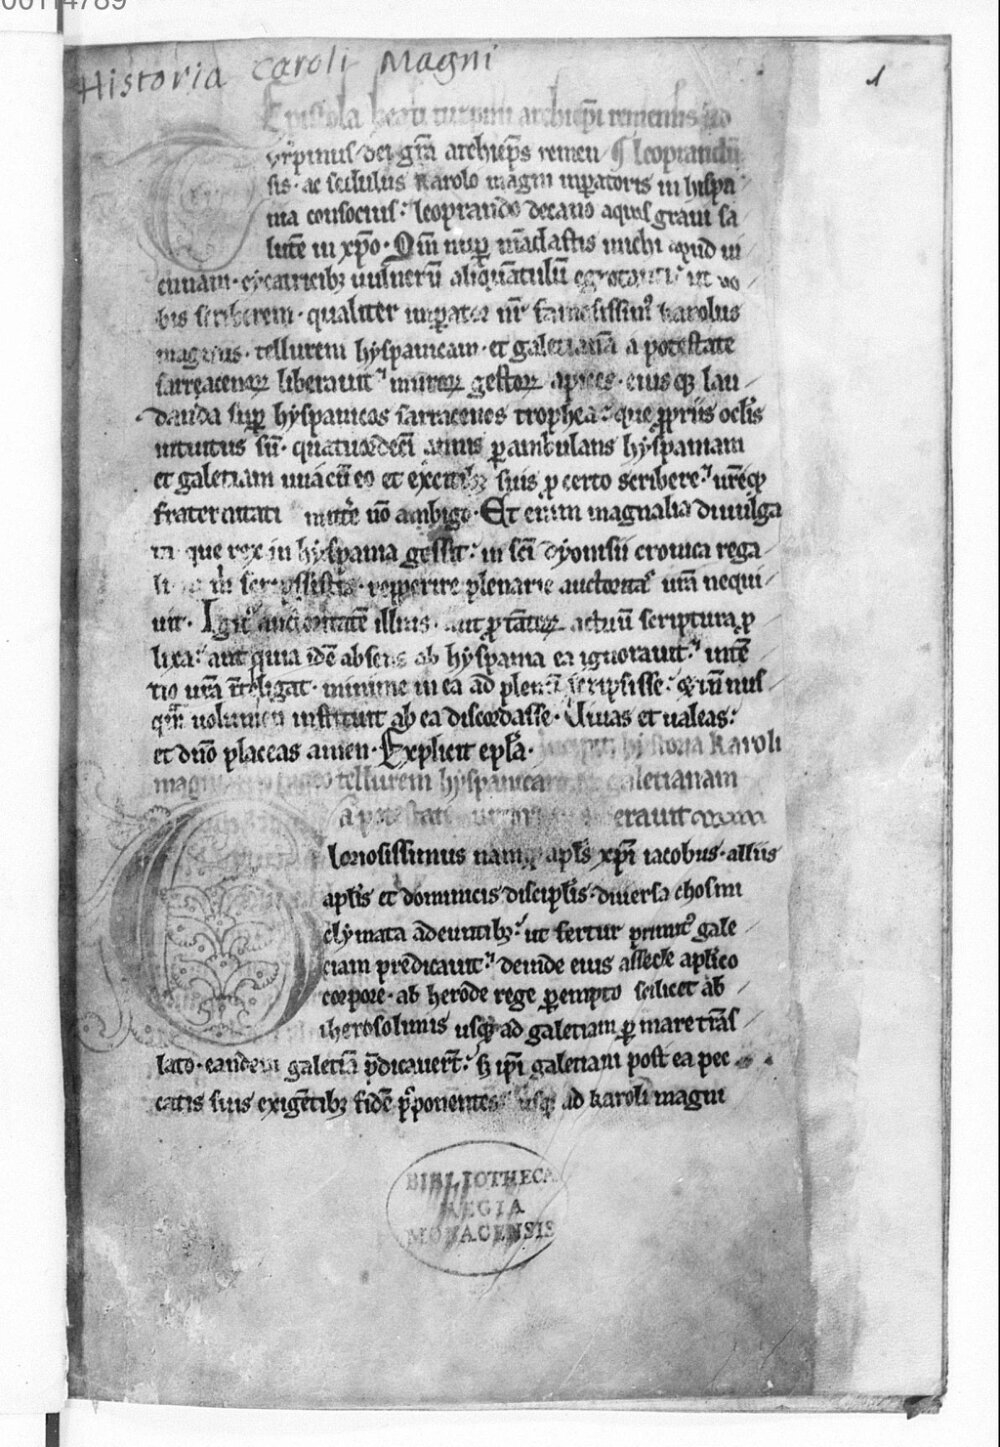 00114789
Historia Caroli Magni
1
Epistola beati turpini archiepi remensis ad
Turpinus dei gra archieps remen ¶ leoprandu
sis · ac sedulus karolo magni inpatoris in hyspa
nia consocius: leoprando decano aquisgrani sa
lute in xpo · Qm nup madastis michi apud ui
ennam · cycatricib; uulneru aliquatulu egrotanti ut uo
bis scriberem · qualiter inpator nr famosissim' karolus
magnus · tellurem hyspanicam · et galetiana a potestate
sarracenoꝝ liberauit mirorꝝ gestorꝝ apices · eius q; lau
danda sup hyspanicos sarracenos trophea: que propriis oclis
intuitus su · quatuordeci annis pambulans hyspaniam
et galetiam una cu eo et exercitib; suis p certo scribere ureq;
fraternitati mitte uo ambigo · Et enim magnalia diuulga
ta que rex in hyspania gessit: in sci dyonisii cronica rega
li scripsistis · repperire plenarie auctoritas ura nequi
uit · Igit' auctoritate illius · aut p tantaꝝ actuu scriptura p
lixa: aut quia ide absens ab hyspania ea ignorauit: inte
tio ura intelligat · minime in ea ad plenu scripsisse: & tn nus
qua uolumen instituit ab ea discordasse · Uiuas et ualeas:
et dno placeas amen · Explicit epla · Incipit hystoria karoli
magni tellurem hyspanicam et galetianam
a potestate liberauit
Gloriosissimus namq; apls xpi iacobus · aliis
aplis et dominicis disciplis · diuersa chosmi
clymata adeuntib; ut fertur primit' gale
ciam predicauit: deinde eius assecle aplico
corpore · ab herode rege pempto scilicet ab
iherosolimis usq; ad galetiam p mare tras
lato · eandem galetia pdicauert: s; ipsi galetiani post ea pec
catis suis exigetib; fide pponentes usq; ad karoli magni
BIBLIOTHECA
REGIA
MONACENSIS